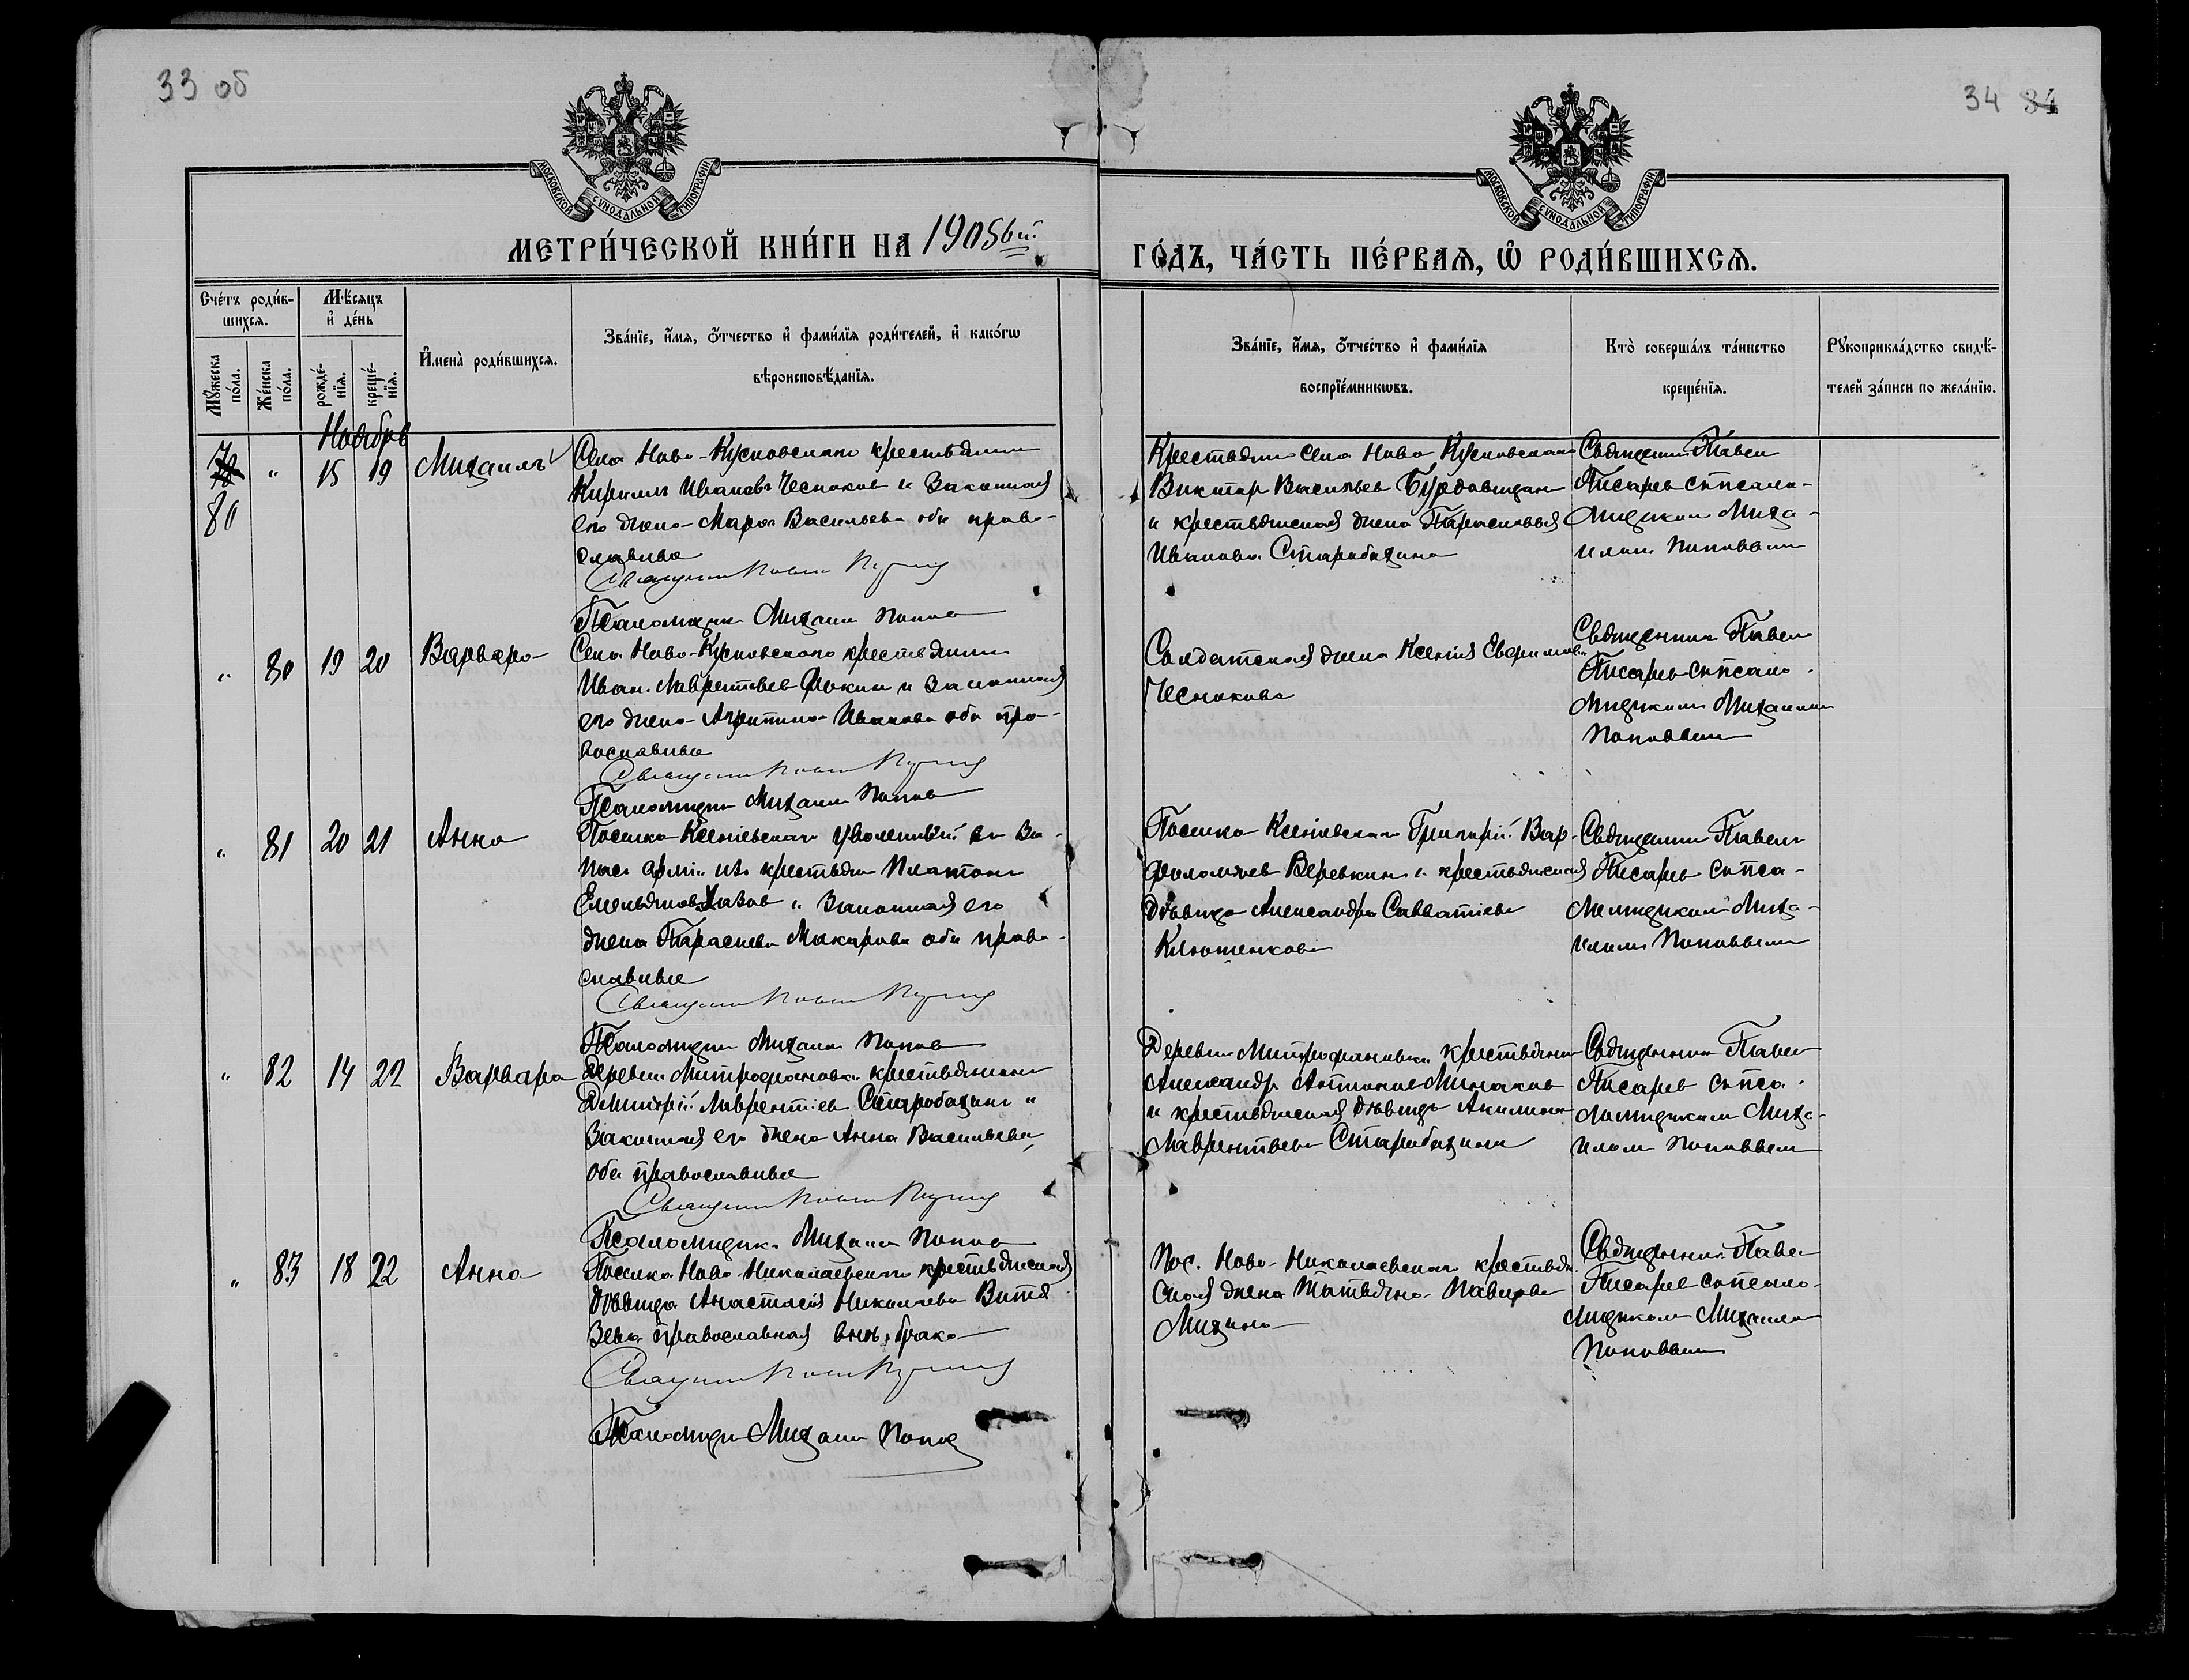 33 об
34 84
МОСКОВСКОЙ СѴНОДАЛЬНОЙ ТИПОГРАФІИ
МОСКОВСКОЙ СѴНОДАЛЬНОЙ ТИПОГРАФІИ
МЕТРИ́ЧЕСКОЙ КНИ́ГИ НА 1905
ГО́ДЪ, ЧА́СТЬ ПЕ́РВАѦ, Ѡ҆ РОДИ́ВШИХСѦ.
Сче́тъ роди́в-
шихсѧ.
Мꙋ́жеска
по́ла.
Же́нска
по́ла.
Мѣ́сѧцъ
и҆ де́нь
рожде́-
нїѧ.
креще́-
нїѧ.
И҆мена̀ роди́вшихсѧ.
Зва́нїе, и҆́мѧ, ѻ҆́тчество и҆ фами́лїѧ роди́телей, и҆ како́гѡ
вѣроисповѣ́данїѧ.
Зва́нїе, и҆́мѧ, ѻ҆́тчество и҆ фами́лїѧ
воспрїе́мникѡвъ.
Кто̀ соверша́лъ та́инство
креще́нїѧ.
Рꙋкоприкла́дство свидѣ́-
телей за́писи по жела́нїю.
Ноябрь
80 " 15 19 Михаилъ
Села Ново-Кусковскаго крестьянинъ
Кириллъ Ивановъ Чесноков и Законная
его жена Васильева оба право-
славные
Священникъ Павелъ
Псаломщикъ Михаилъ Попов
Крестьянин села Ново Кусковскаго
Виктор Васильев
и крестьянская жена Парасковья
Иванова Старобахина
Священник Павел
Писарев с псало-
мщиком Миха-
илом Поповым
" 80 19 20 Варвара
Села Ново-Кусковскаго крестьянинъ
Иван Лаврентьев Фокин и Законная
его жена Агрипина Иванова оба пра-
вославные
Священникъ Павелъ
Псаломщикъ Михаилъ Попов
Солдатская жена Ксения
Чеснокова
Священник Павел
Писарев с псало-
мщиком Михаилом
Поповым
" 81 20 21 Анна
Поселка Ксеніевскаго уволенный в за-
пас арміи изъ крестьян Платонъ
Емельянов и Законная его
жена Параскева Макарова оба право-
славные
Священникъ Павелъ
Псаломщикъ Михаилъ Попов
Поселка Ксеніевскаго Григорій Вар-
фоломеев Веревкин и крестьянская
дѣвица Александра Савватіева
Клютенкова
Священник Павелъ
Писарев с пса-
ломщиком Миха-
илом Поповым
" 82 14 22 Варвара
Деревни Митрофановки крестьянинъ
Димитрій Лаврентіев Старобахинъ и
Законная его жена Анна Васильева
оба православные
Священникъ Павелъ
Псаломщикъ Михаилъ Попов
Деревни Митрофановки крестьянин
Александр Антонов Минаков
и крестьянская дѣвица Акилина
Лаврентьева Старобахина
Священник Павел
Писарев с пса-
ломщиком Миха-
илом Поповым
" 83 18 22 Анна
Поселка Ново-Николаевскаго крестьянская
дѣвица Анастасія Николаева Витя-
зева православная внѣ брака
Священникъ Павелъ
Псаломщикъ Михаилъ Попов
Пос. Ново-Николаевскаго крестьян-
ская жена Татьяна
Михина
Священник Павел
Писарев с псало-
мщиком Михаилом
Поповым